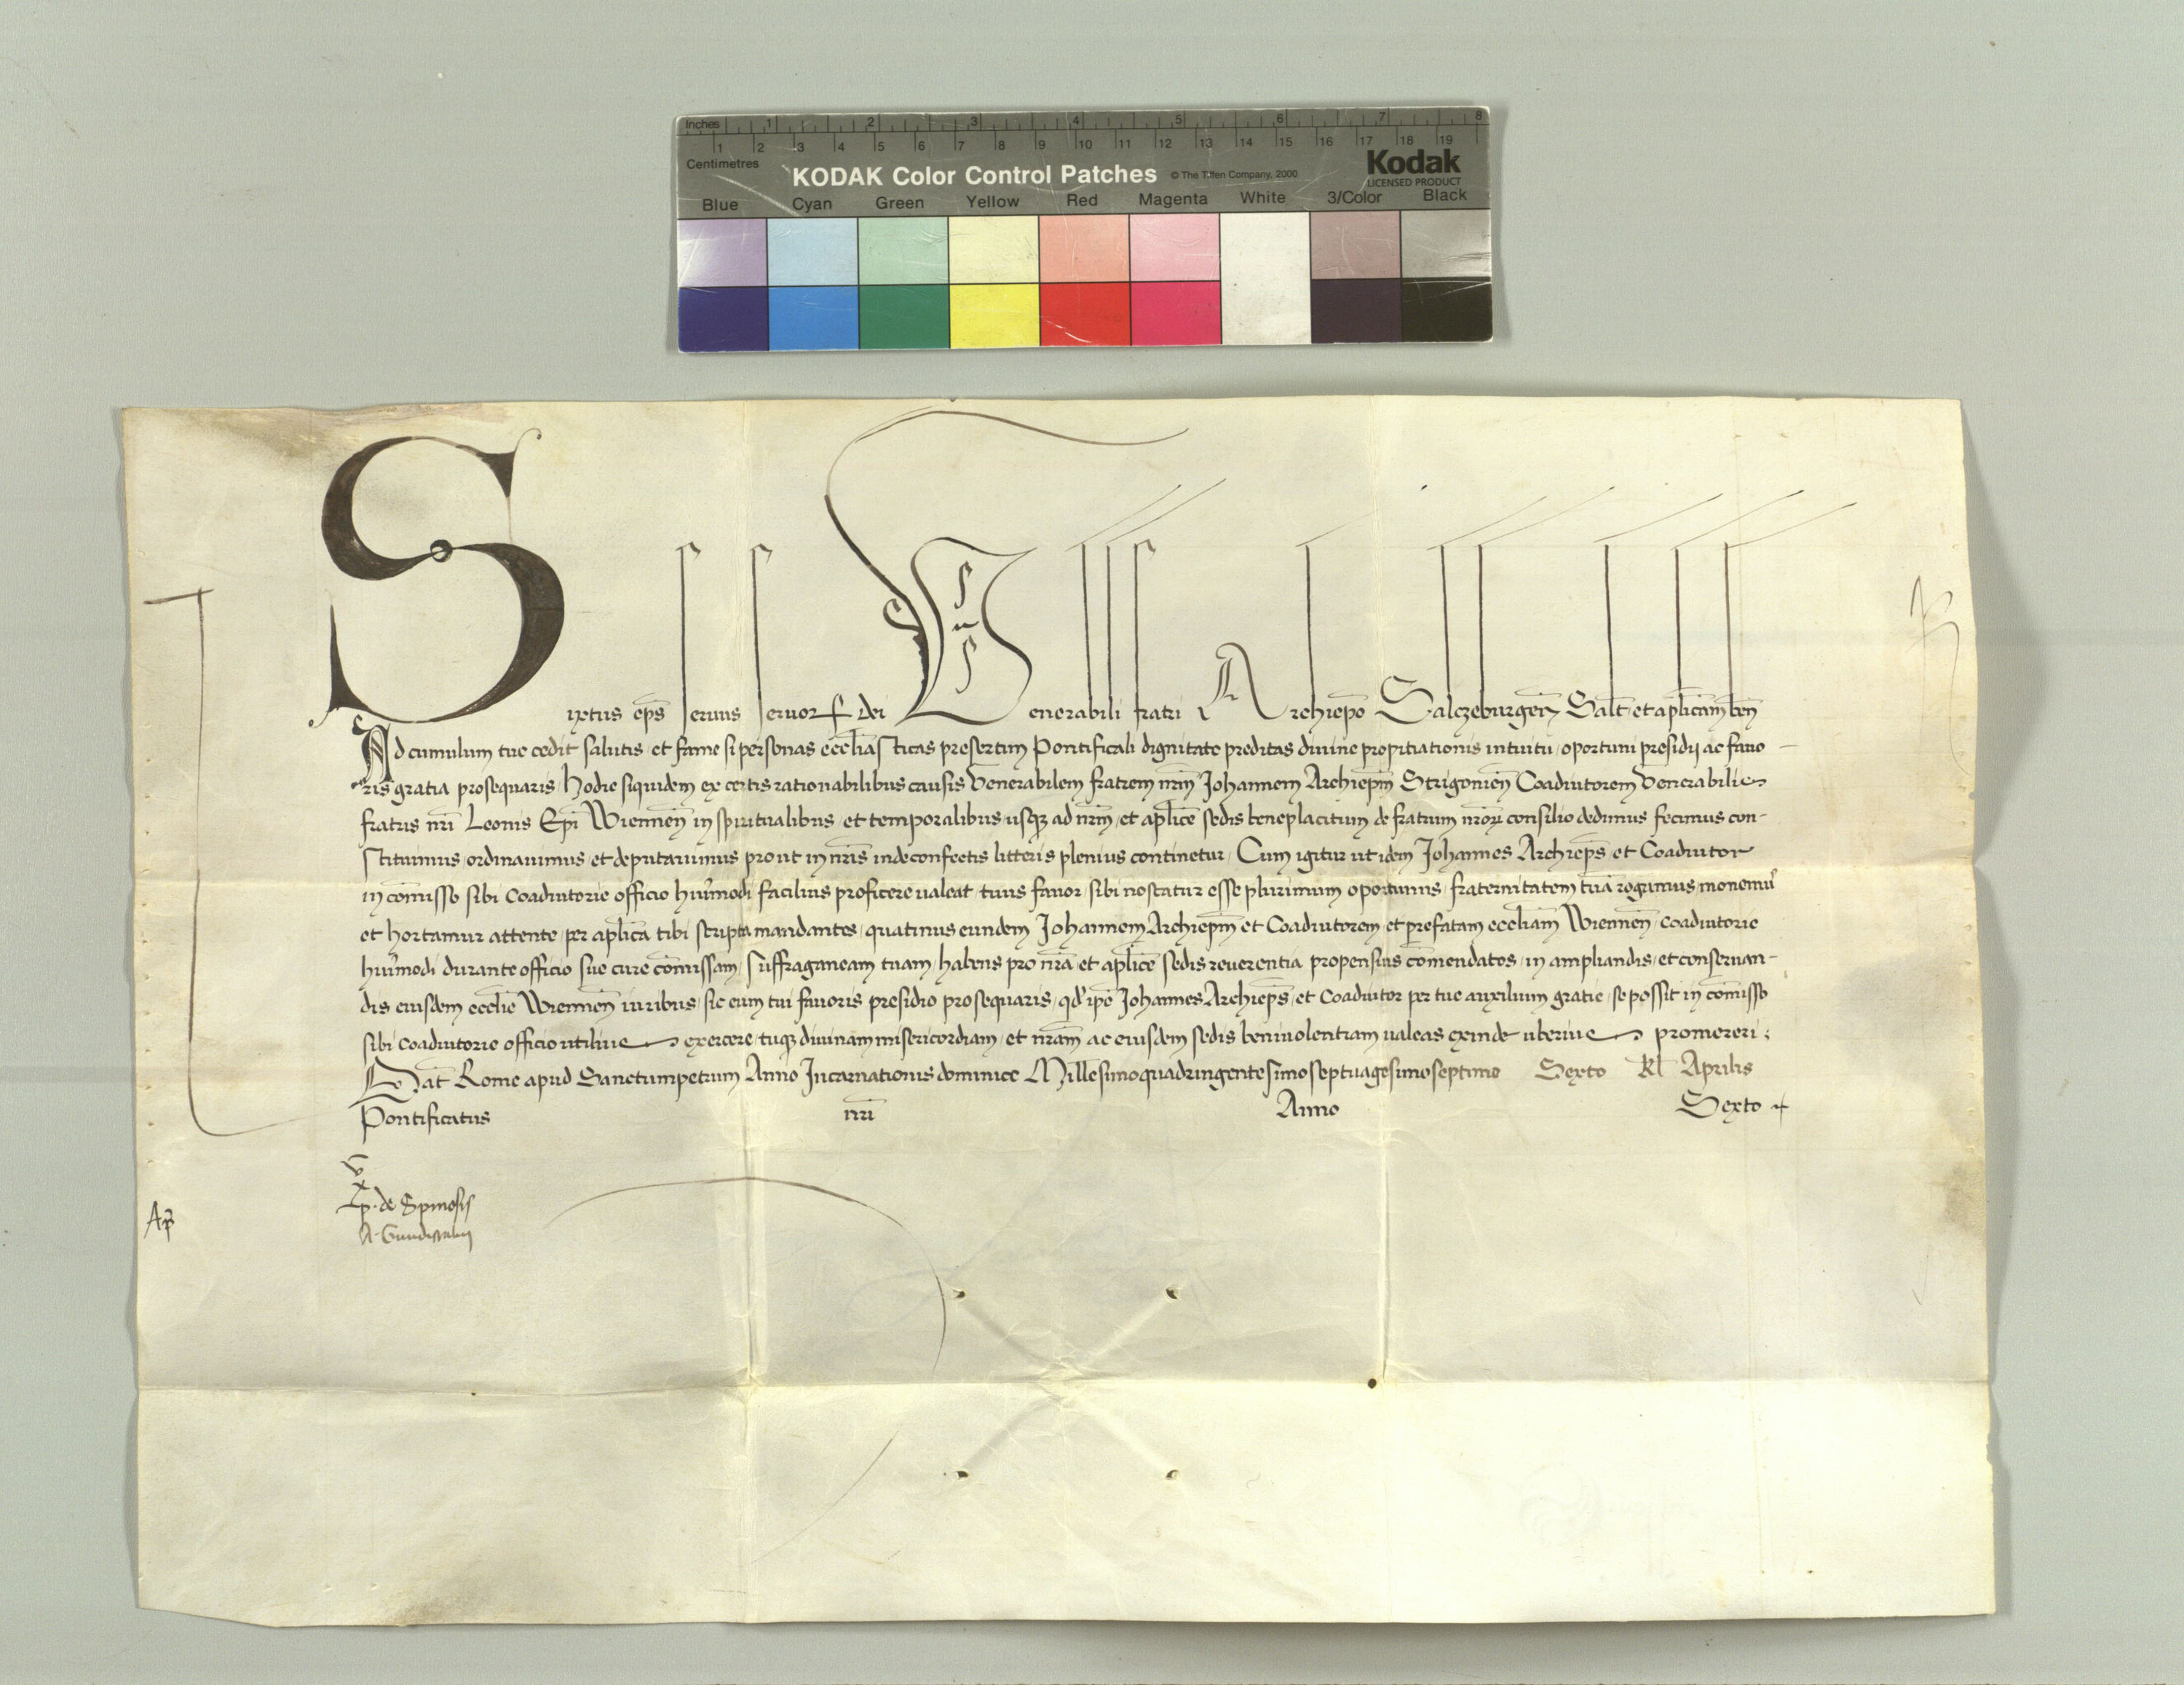 Inches 1 2 3 4 5 6 7 8
1 2 3 4 5 6 7 8 9 10 11 12 13 14 15 16 17 18 19
Centimetres
KODAK Color Control Patches © The Tiffen Company, 2000 Kodak
LICENSED PRODUCT
Blue Cyan Green Yellow Red Magenta White 3/Color Black
Sixtus ep̄s seruus seruorꝝ dei Venerabili fratri Archiep̄o Salczeburgen̄ Salt̄ et aplicam̄ ben̄
Ad cumulum tue cedit salutis et fame si personas eccliāsticas presertim Pontificali dignitate preditas diuine propitiationis intuitu oportuni presidij ac fauo-
ris gratia prosequaris Hodie siquidem ex certis rationabilibus causis Venerabilem fratrem nr̄m Johannem Archiep̄m Strigonien̄ Coadiutorem Venerabilis
fratris nr̄i Leonis Ep̄i Wiennen̄ in spiritualibus et temporalibus usqꝫ ad nr̄m et aplicē sedis beneplacitum de fratrum nr̄orꝝ consilio dedimus fecimus con-
stituimus ordinauimus et deputauimus prout in nr̄is inde confectis litteris plenius continetur Cum igitur ut idem Johannes Archiep̄s et Coadiutor
in com̄isso sibi Coadiutorie officio huiꝰmodi facilius proficere ualeat tuus fauor sibi noscatur esse plurimum oportunus fraternitatem tuā rogamus monemꝰ
et hortamur attente per aplicā tibi scripta mandantes quatinus eundem Johannem Archiep̄m et Coadiutorem et prefatam eccliām Wiennen̄ Coadiutorie
huiꝰmodi durante officio sue cure com̄issam suffraganeam tuam habens pro nr̄a et aplicē sedis reuerentia propensius com̄endatos in ampliandis et conseruan-
dis eiusdem eccliē Wiennen̄ iuribus sic eum tui fauoris presidio prosequaris qd' ip̄e Johannes Archiep̄s et Coadiutor per tue auxilium gratie se possit in com̄isso
sibi Coadiutorie officio utilius exercere tuqꝫ diuinam misericordiam et nr̄am ac eiusdem sedis beniuolentiam ualeas exinde uberius promereri;
Dat̄ Rome apud Sanctumpetrum Anno Incarnationis dominice Millesimoquadringentesimoseptuagesimoseptimo Sexto Kl̄ Aprilis
Pontificatus nr̄i Anno Sexto
p. de Spinosis
Ap̄